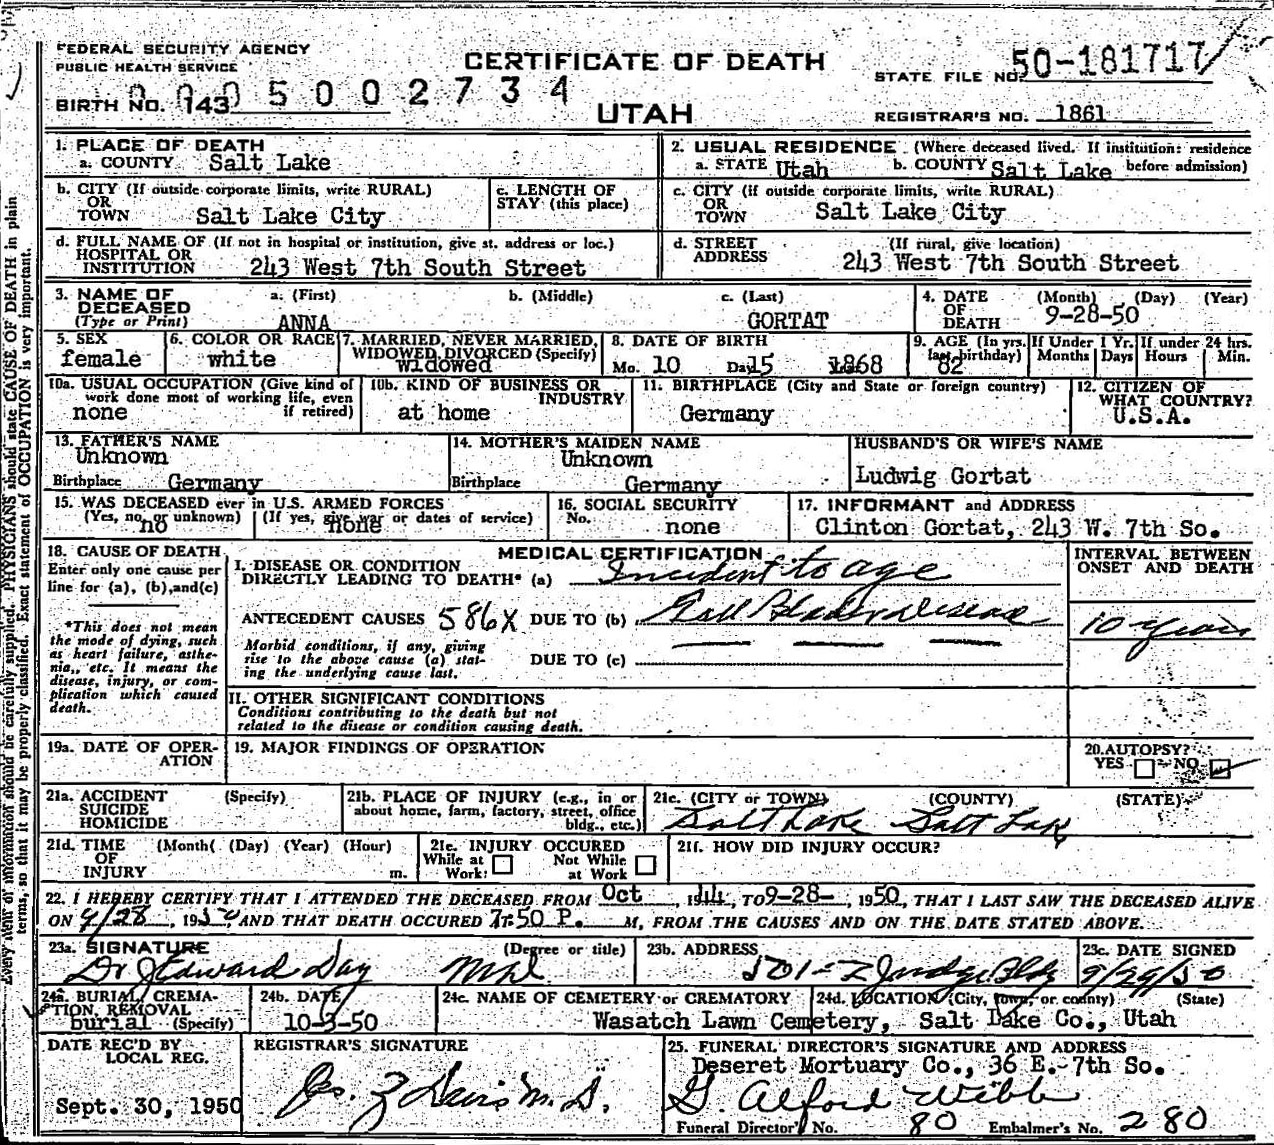 FEDERAL SECURITY AGENCY
PUBLIC HEALTH SERVICE
BIRTH NO. 143
0005002734
CERTIFICATE OF DEATH
UTAH
STATE FILE NO. 50-181717
REGISTRAR'S NO. 1861
1. PLACE OF DEATH
a. COUNTY Salt Lake
2. USUAL RESIDENCE (Where deceased lived. If institution: residence before admission)
a. STATE Utah b. COUNTY Salt Lake
b. CITY (If outside corporate limits, write RURAL)
OR
TOWN Salt Lake City
c. LENGTH OF
STAY (this place)
c. CITY (if outside corporate limits, write RURAL)
OR
TOWN Salt Lake City
d. FULL NAME OF (If not in hospital or institution, give st. address or loc.)
HOSPITAL OR
INSTITUTION 243 West 7th South Street
d. STREET (If rural, give location)
ADDRESS 243 West 7th South Street
3. NAME OF a. (First) b. (Middle) c. (Last)
DECEASED
(Type or Print) ANNA GORTAT
4. DATE (Month) (Day) (Year)
OF
DEATH 9-28-50
5. SEX
female
6. COLOR OR RACE
white
7. MARRIED, NEVER MARRIED,
WIDOWED, DIVORCED (Specify)
widowed
8. DATE OF BIRTH
Mo. 10 Day 15 1868
9. AGE (In yrs.
last birthday)
82
If Under 1 Yr.
Months Days
If under 24 hrs.
Hours Min.
10a. USUAL OCCUPATION (Give kind of
work done most of working life, even
if retired)
none
10b. KIND OF BUSINESS OR
INDUSTRY
at home
11. BIRTHPLACE (City and State or foreign country)
Germany
12. CITIZEN OF
WHAT COUNTRY?
U.S.A.
13. FATHER'S NAME
Unknown
Birthplace Germany
14. MOTHER'S MAIDEN NAME
Unknown
Birthplace Germany
HUSBAND'S OR WIFE'S NAME
Ludwig Gortat
15. WAS DECEASED ever in U.S. ARMED FORCES
(Yes, no, or unknown) (If yes, give war or dates of service)
no none
16. SOCIAL SECURITY
No. none
17. INFORMANT and ADDRESS
Clinton Gortat, 243 W. 7th So.
18. CAUSE OF DEATH
Enter only one cause per
line for (a), (b), and (c)
*This does not mean
the mode of dying, such
as heart failure, asthe-
nia, etc. It means the
disease, injury, or com-
plication which caused
death.
MEDICAL CERTIFICATION
I. DISEASE OR CONDITION
DIRECTLY LEADING TO DEATH* (a) Incident to age
ANTECEDENT CAUSES 586X DUE TO (b) Gall Bladder disease
Morbid conditions, if any, giving
rise to the above cause (a) stat-
ing the underlying cause last.
DUE TO (c)
INTERVAL BETWEEN
ONSET AND DEATH
10 years
II. OTHER SIGNIFICANT CONDITIONS
Conditions contributing to the death but not
related to the disease or condition causing death.
19a. DATE OF OPER-
ATION
19. MAJOR FINDINGS OF OPERATION
20. AUTOPSY?
YES NO
21a. ACCIDENT (Specify)
SUICIDE
HOMICIDE
21b. PLACE OF INJURY (e.g., in or
about home, farm, factory, street, office
bldg., etc.)
21c. (CITY or TOWN) (COUNTY) (STATE)
Salt Lake Salt Lake
21d. TIME (Month( (Day) (Year) (Hour)
OF
INJURY m.
21e. INJURY OCCURED
While at Work: Not While at Work
21f. HOW DID INJURY OCCUR?
22. I HEREBY CERTIFY THAT I ATTENDED THE DECEASED FROM Oct, 1944, TO 9-28-, 1950, THAT I LAST SAW THE DECEASED ALIVE
ON 9/28, 1950, AND THAT DEATH OCCURED 7:50 P. M, FROM THE CAUSES AND ON THE DATE STATED ABOVE.
23a. SIGNATURE (Degree or title)
Dr J Edward Day
23b. ADDRESS
Judge Bldg
23c. DATE SIGNED
9/29/50
24a. BURIAL, CREMA-
TION, REMOVAL
burial (Specify)
24b. DATE
10-3-50
24c. NAME OF CEMETERY or CREMATORY
24d. LOCATION (City, town, or county) (State)
Wasatch Lawn Cemetery, Salt Lake Co., Utah
DATE REC'D BY
LOCAL REG.
Sept. 30, 1950
REGISTRAR'S SIGNATURE
Davis M.D.
25. FUNERAL DIRECTOR'S SIGNATURE AND ADDRESS
Deseret Mortuary Co., 36 E. 7th So.
G. Alford Webb
Funeral Director's No. 80 Embalmer's No. 280
Every item of information should be carefully supplied. PHYSICIANS should state CAUSE OF DEATH in plain
terms, so that it may be properly classified. Exact statement of OCCUPATION is very important.